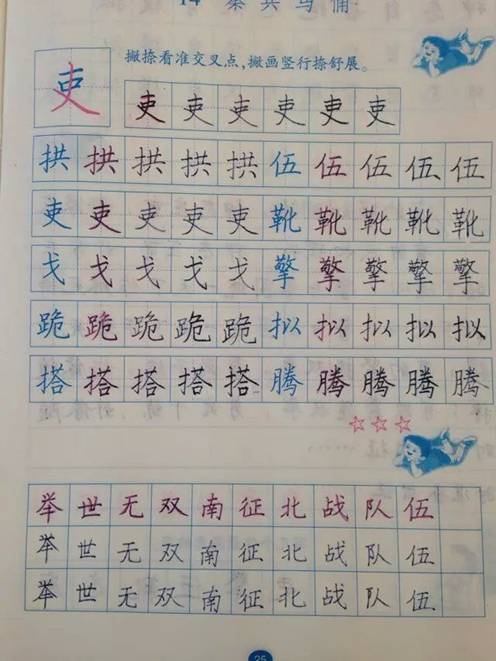 14 秦兵马俑
撇捺看准交叉点,撇画竖行捺舒展。
吏
吏吏吏吏吏吏
拱拱拱拱拱伍伍伍伍伍
吏吏吏吏吏靴靴靴靴靴
戈戈戈戈戈擎擎擎擎擎
跪跪跪跪跪拟拟拟拟拟
搭搭搭搭搭腾腾腾腾腾
☆☆☆
举世无双南征北战队伍
举世无双南征北战队伍
举世无双南征北战队伍
25